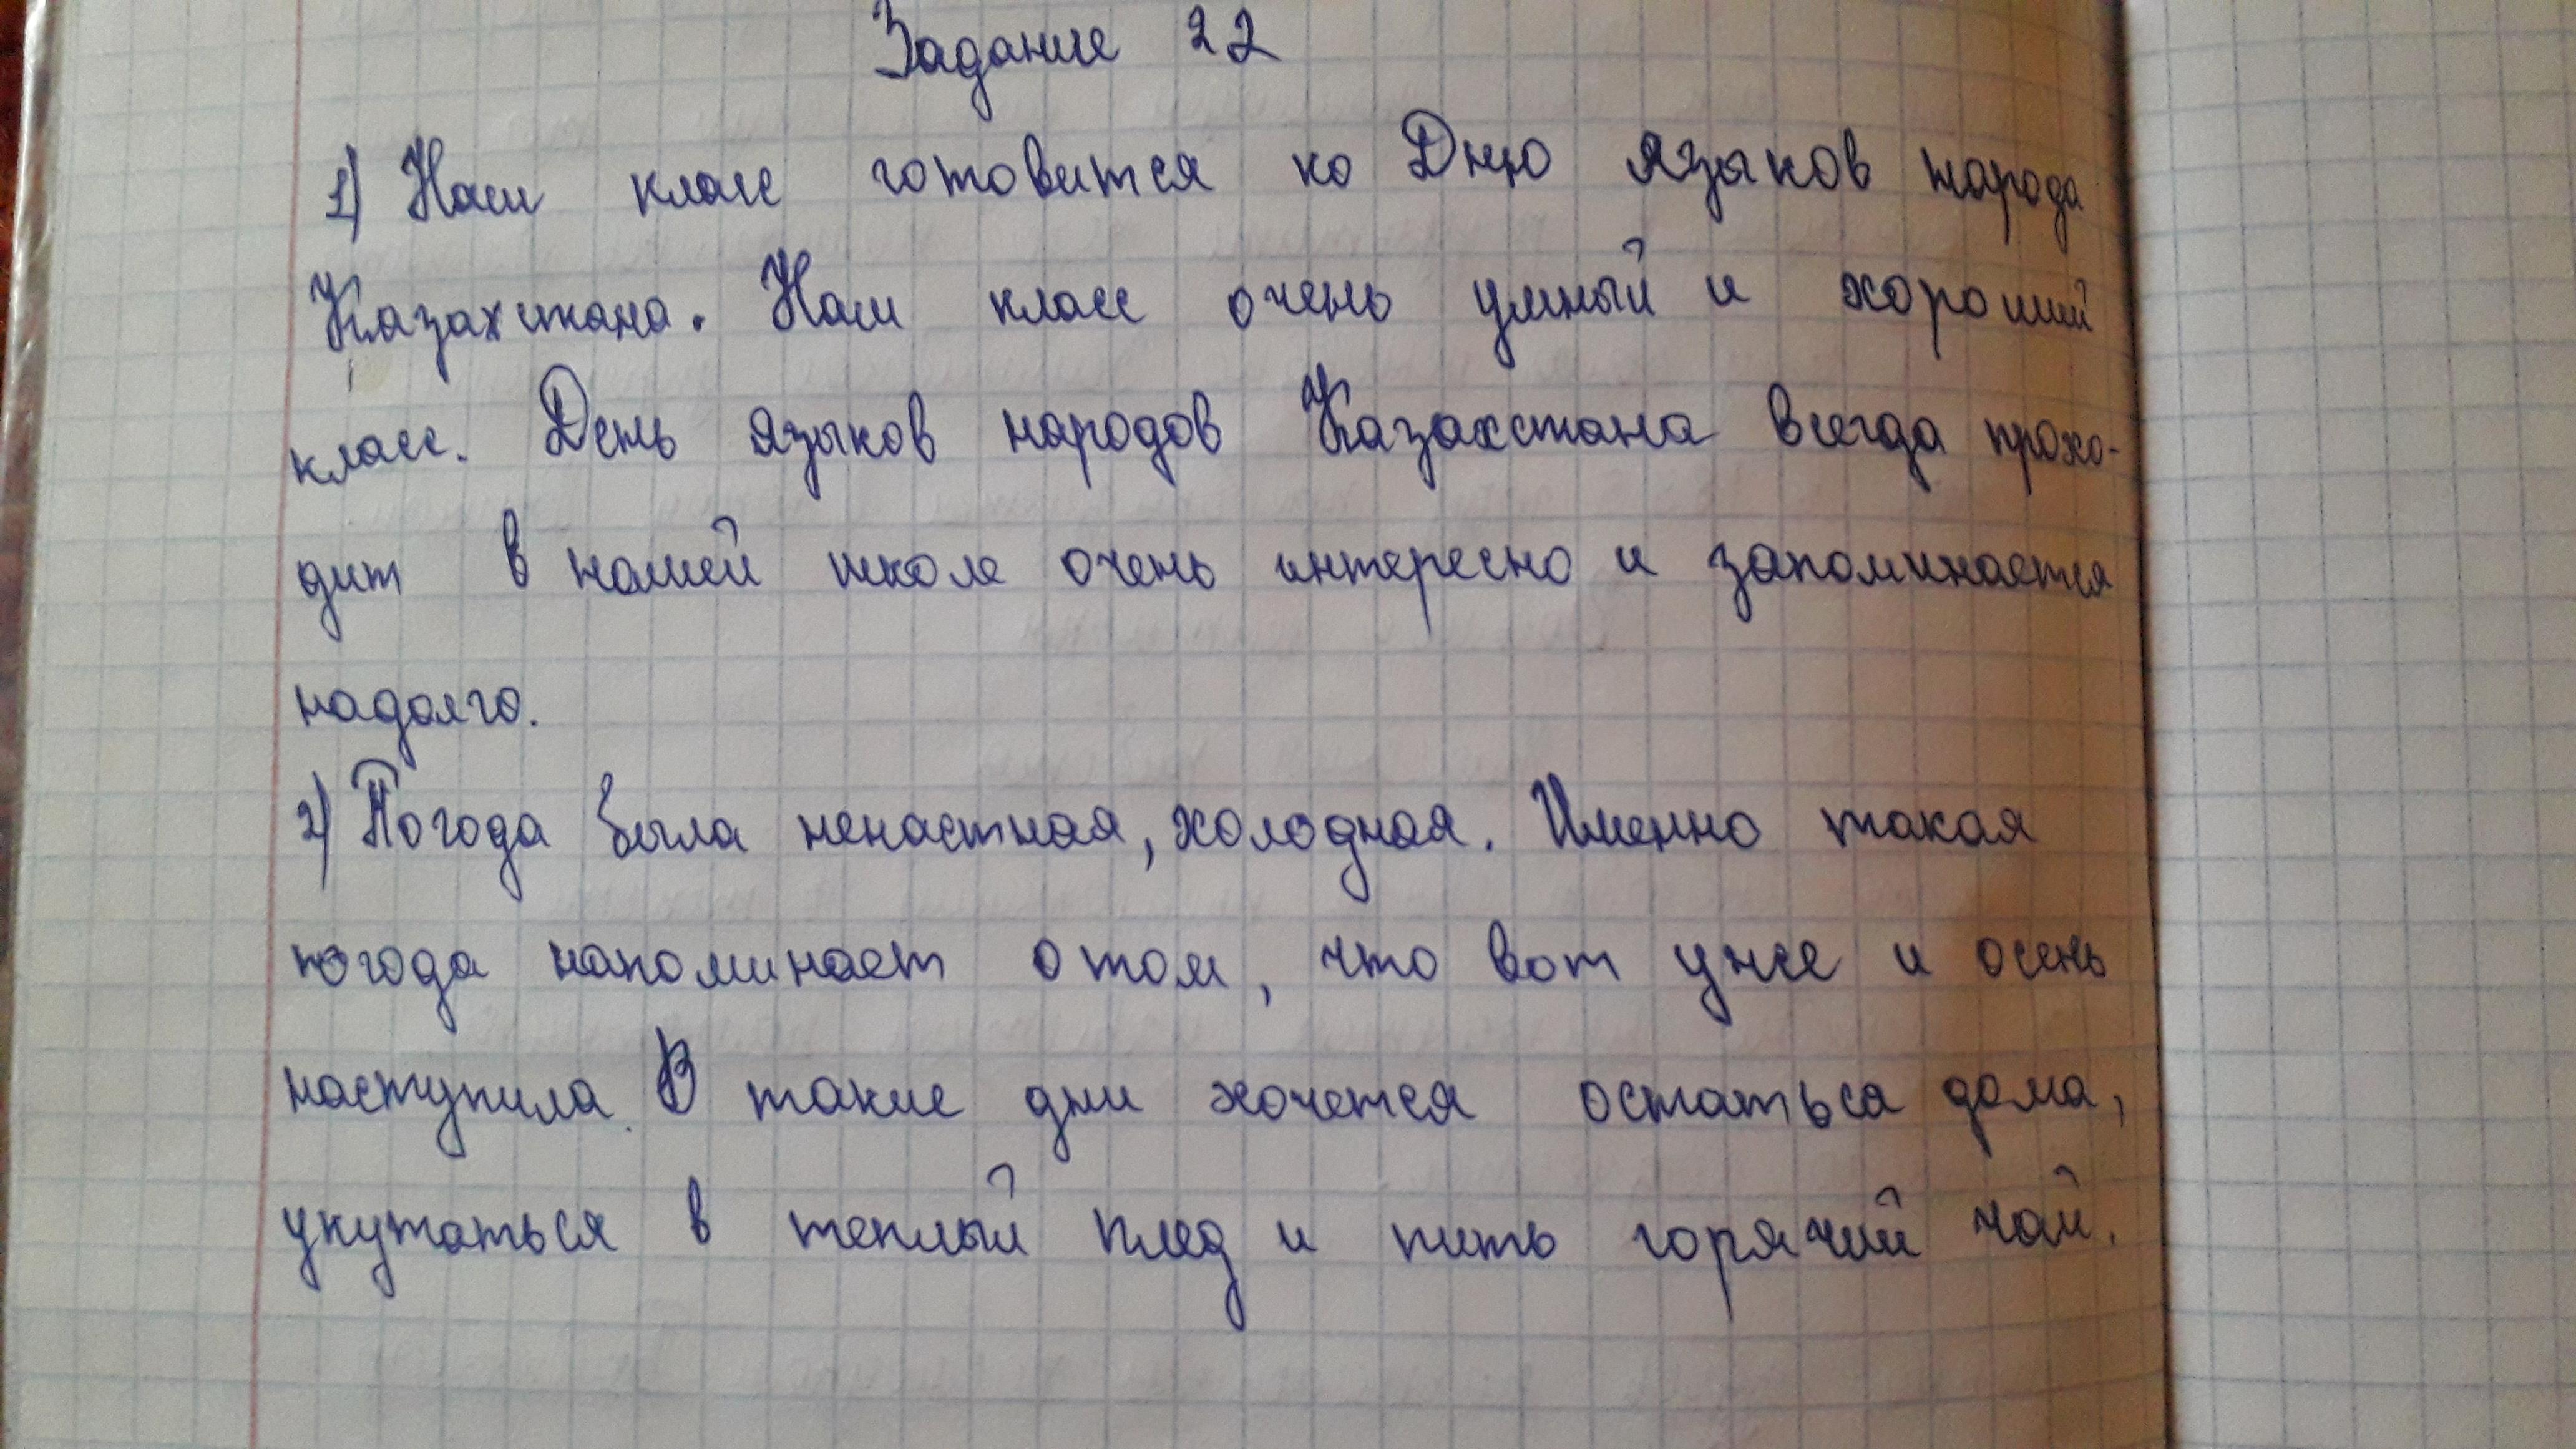 Задание 22
1) Наш класс готовится ко Дню языков народа
Казахстана. Наш класс очень умный и хороший
класс. День языков народов Казахстана всегда прохо-
дит в нашей школе очень интересно и запоминается
надолго.
2) Погода была ненастная, холодная. Именно такая
погода напоминает о том, что вот уже и осень
наступила. В такие дни хочется остаться дома,
укутаться в теплый плед и пить горячий чай.